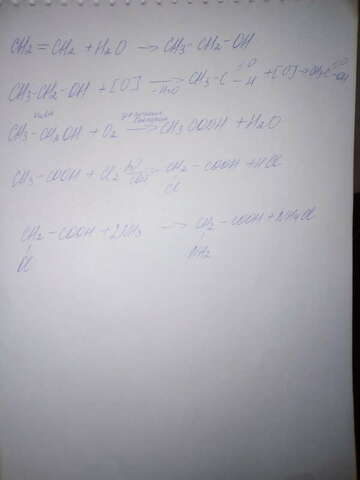 CH2 = CH2 + H2O → CH3 - CH2 - OH
CH3 - CH2 - OH + [O] → -H2O CH3 - C =O -H + [O] → CH3C =O -OH
или
CH3 - CH2OH + O2 → CH3COOH + H2O
CH3 - COOH + Cl2 → CH2 - COOH + HCl
Cl
CH2 - COOH + 2NH3 → CH2 - COOH + NH4Cl
Cl NH2